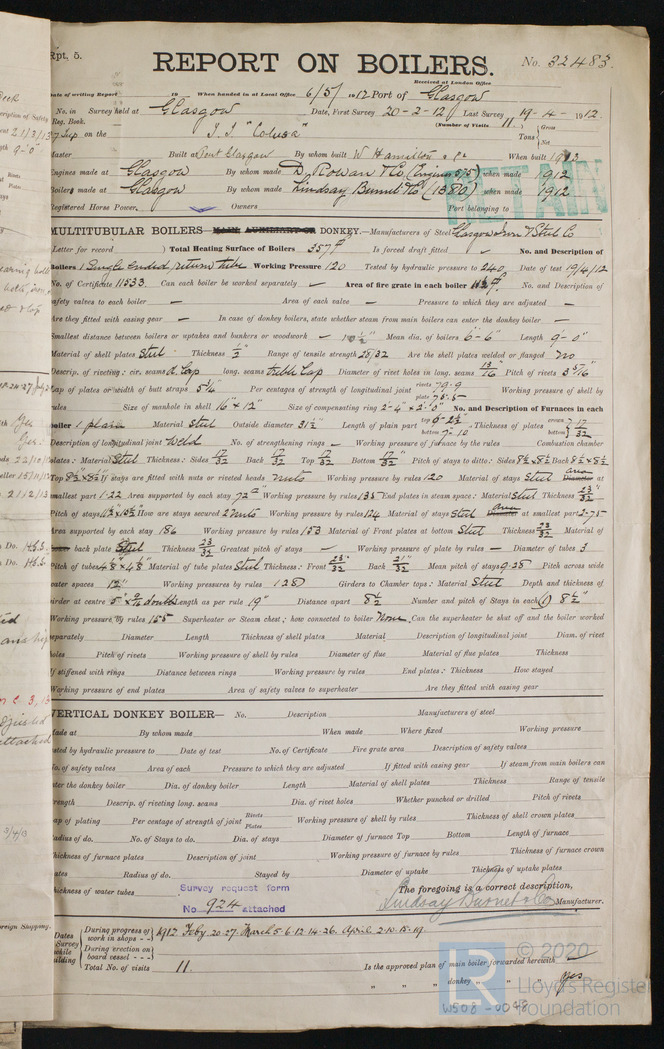 Rpt. 5.
REPORT ON BOILERS.
No. 32483.
Received at London Office
Date of writing Report 19 When handed in at Local Office 6/5/1912 Port of Glasgow
No. in Survey held at Glasgow Date, First Survey 20-2-12 Last Survey 19-4-1912.
Reg. Book. (Number of Visits 11.)
on the "Colusa" Tons Gross Net
Master Built at Port Glasgow By whom built W Hamilton & Co When built 1913
Engines made at Glasgow By whom made D. Rowan & Co (Engine 575) when made 1912
Boilers made at Glasgow By whom made Lindsay Burnet & Co (1380) when made 1912
Registered Horse Power Owners Port belonging to
RETAIN
MULTITUBULAR BOILERS—MAIN AUXILIARY OR DONKEY.—Manufacturers of Steel Glasgow Iron & Steel Co
(Letter for record ) Total Heating Surface of Boilers 357 ft Is forced draft fitted – No. and Description of
Boilers 1 Single Ended, return tube Working Pressure 120 Tested by hydraulic pressure to 240 Date of test 19/4/12
No. of Certificate 11533 Can each boiler be worked separately – Area of fire grate in each boiler No. and Description of
safety valves to each boiler – Area of each valve – Pressure to which they are adjusted –
Are they fitted with easing gear – In case of donkey boilers, state whether steam from main boilers can enter the donkey boiler –
Smallest distance between boilers or uptakes and bunkers or woodwork – Mean dia. of boilers 6'-6" Length 9'-0"
Material of shell plates Steel Thickness 1/2" Range of tensile strength 28/32 Are the shell plates welded or flanged No
Descrip. of riveting: cir. seams d. Lap long. seams treble Lap Diameter of rivet holes in long. seams 13/16" Pitch of rivets 3 5/16"
Lap of plates or width of butt straps 5 3/4 Per centages of strength of longitudinal joint rivets 79.9 plate 75.5 Working pressure of shell by
rules Size of manhole in shell 16" x 12" Size of compensating ring 2'-4" x 2'-0" No. and Description of Furnaces in each
boiler 1 plain Material Steel Outside diameter 31 1/2" Length of plain part top 6'-2 1/2" bottom Thickness of plates crown bottom 17/32"
Description of longitudinal joint Weld No. of strengthening rings – Working pressure of furnace by the rules Combustion chamber
plates: Material Steel Thickness: Sides 17/32 Back 17/32 Top 17/32 Bottom 17/32" Pitch of stays to ditto: Sides 8 1/2 x 8 1/2 Back 8 1/2 x 8 1/2
Top 8 1/2" x 8 1/2" If stays are fitted with nuts or riveted heads Nuts Working pressure by rules 120 Material of stays Steel area Diameter at
smallest part 1.22 Area supported by each stay 72" Working pressure by rules 135 End plates in steam space: Material Steel Thickness 23/32"
Pitch of stays How are stays secured 2 Nuts Working pressure by rules 124 Material of stays Steel area Diameter at smallest part 2.75
Area supported by each stay 186 Working pressure by rules 153 Material of Front plates at bottom Steel Thickness 23/32" Material of
back plate Steel Thickness 23/32 Greatest pitch of stays – Working pressure of plate by rules – Diameter of tubes 3
Pitch of tubes Material of tube plates Steel Thickness: Front 23/32" Back 21/32" Mean pitch of stays 9.25 Pitch across wide
water spaces 12" Working pressures by rules 128 Girders to Chamber tops: Material Steel Depth and thickness of
girder at centre double Length as per rule 19" Distance apart 8 1/2 Number and pitch of Stays in each (1) 8 1/2"
Working pressure by rules 155 Superheater or Steam chest; how connected to boiler None Can the superheater be shut off and the boiler worked
separately Diameter Length Thickness of shell plates Material Description of longitudinal joint Diam. of rivet
holes Pitch of rivets Working pressure of shell by rules Diameter of flue Material of flue plates Thickness
If stiffened with rings Distance between rings Working pressure by rules End plates: Thickness How stayed
Working pressure of end plates Area of safety valves to superheater Are they fitted with easing gear
VERTICAL DONKEY BOILER— No. Description Manufacturers of steel
Made at By whom made When made Where fixed Working pressure
tested by hydraulic pressure to Date of test No. of Certificate Fire grate area Description of safety valves
No. of safety valves Area of each Pressure to which they are adjusted If fitted with easing gear If steam from main boilers can
enter the donkey boiler Dia. of donkey boiler Length Material of shell plates Thickness Range of tensile
strength Descrip. of riveting long. seams Dia. of rivet holes Whether punched or drilled Pitch of rivets
Lap of plating Per centage of strength of joint Rivets Plates Working pressure of shell by rules Thickness of shell crown plates
Radius of do. No. of Stays to do. Dia. of stays Diameter of furnace Top Bottom Length of furnace
Thickness of furnace plates Description of joint Working pressure of furnace by rules Thickness of furnace crown
plates Radius of do. Stayed by Diameter of uptake Thickness of uptake plates
Thickness of water tubes
Survey request form
No. 924 attached
The foregoing is a correct description,
Lindsay Burnet & Co Manufacturer.
Dates of Survey while building
During progress of work in shops - - 1912 Feby. 20. 27. March 5. 6. 12. 14. 26. April 2. 10. 15. 19.
During erection on board vessel - - -
Total No. of visits 11.
Is the approved plan of main boiler forwarded herewith –
" " " donkey " " " yes
© 2020
Lloyd's Register
Foundation
W508-0048